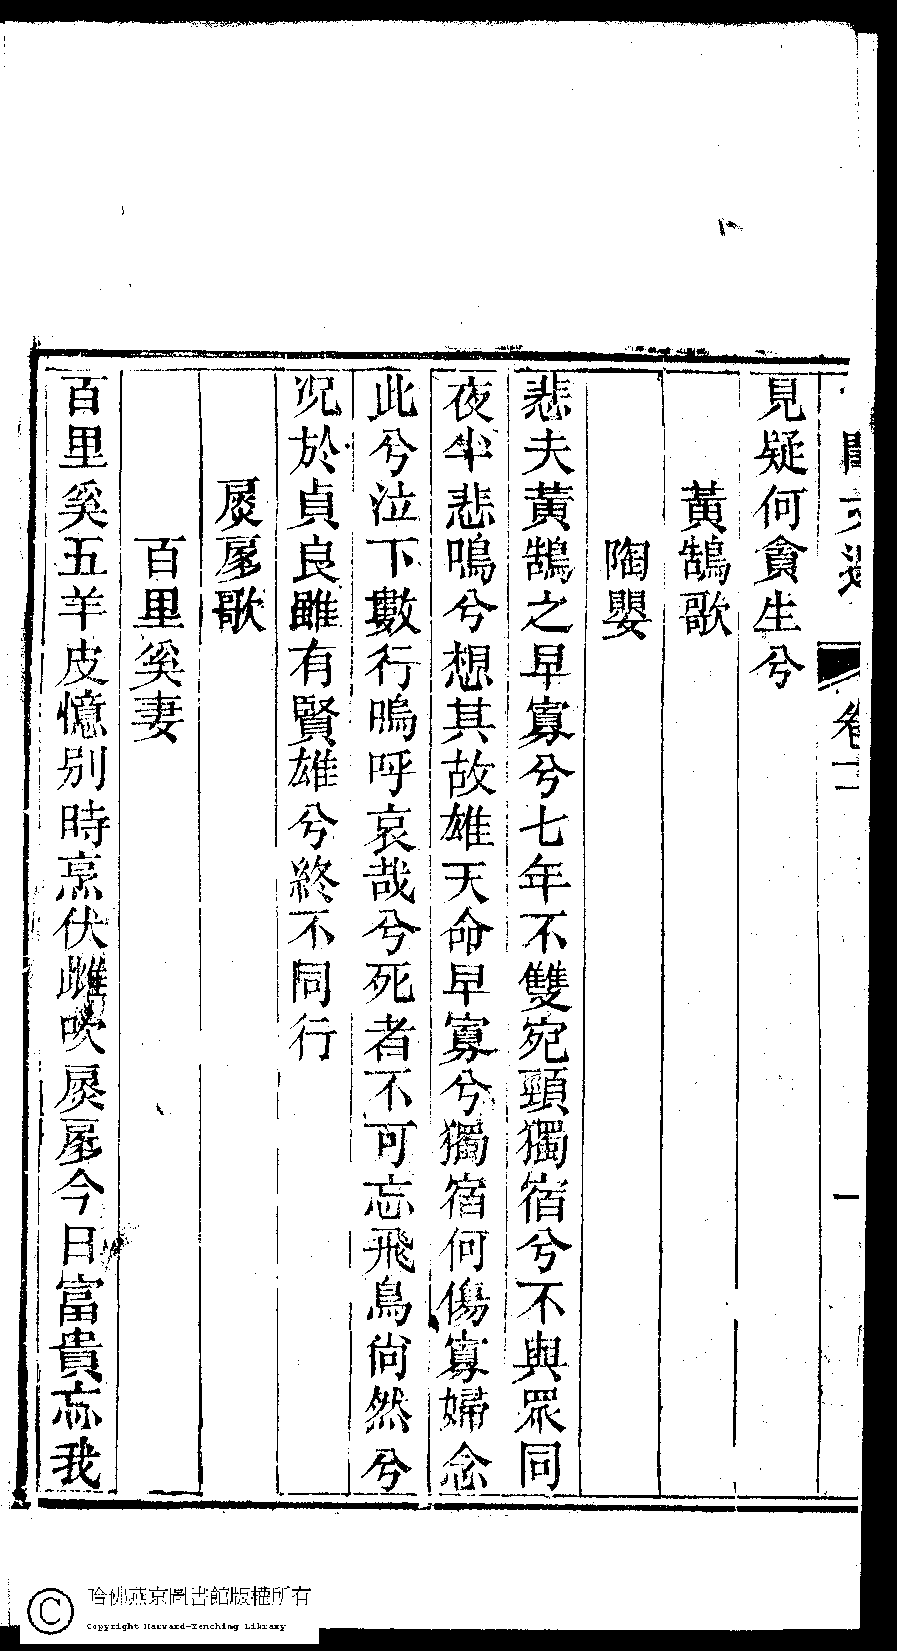 見疑何貪生兮
黃鵠歌
陶嬰
悲夫黃鵠之早寡兮七年不雙宛頸獨宿兮不與眾同
夜半悲鳴兮想其故雄天命早寡兮獨宿何傷寡婦念
此兮泣下數行嗚呼哀哉兮死者不可忘飛鳥尙然兮
况於貞良雖有賢雄兮終不同行
扊扅歌
百里奚妻
百里奚五羊皮憶別時烹伏雌吹扊扅今日富貴忘我
卷一
一
哈佛燕京圖書館版權所有
Copyright Harvard-Yenching Library